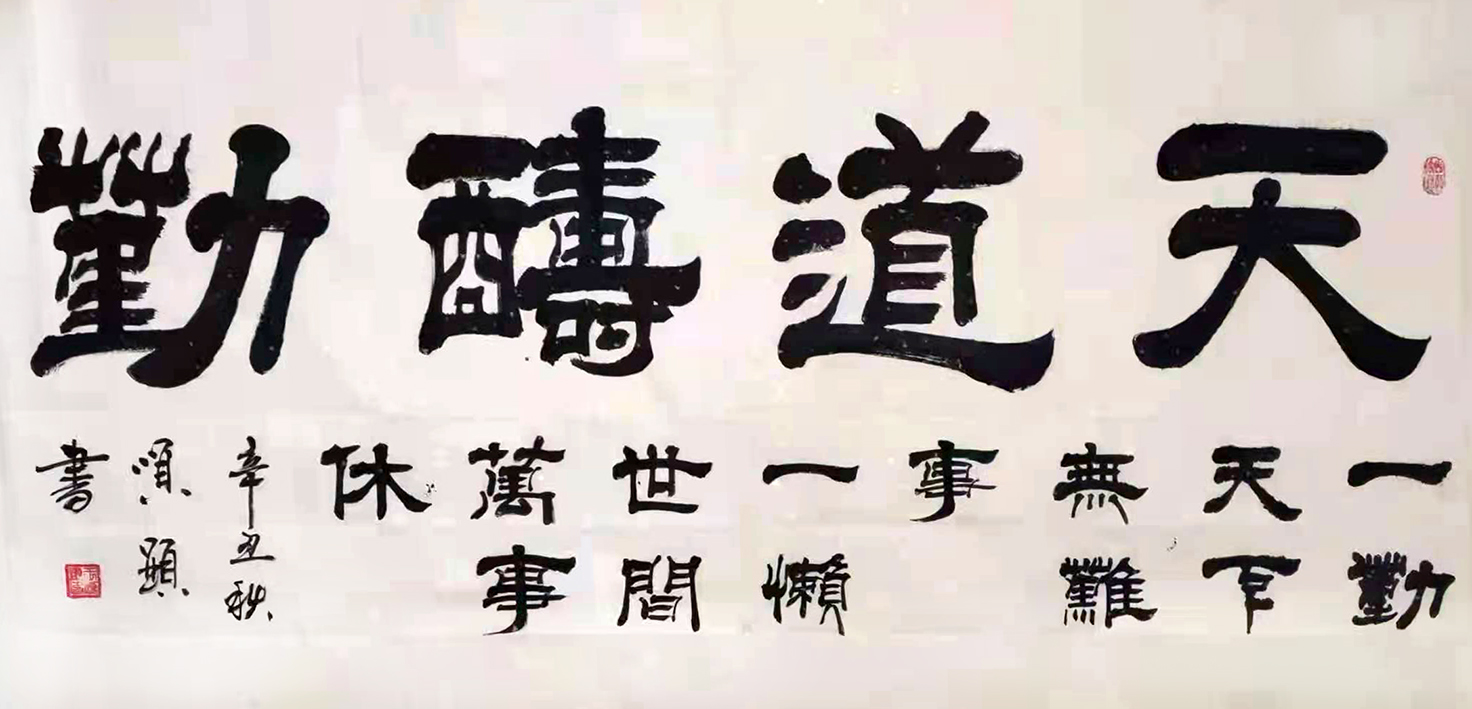 天道醻勤
一勤
天下
無難
事
一懶
世間
萬事
休
辛丑秋
書